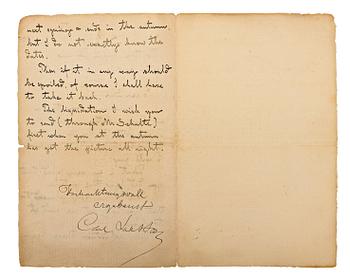 next spring & ends in the autumn.
but I do not exactly know the
dates.
Then if it in any way should
be spoiled, of course I shall have
to take it back.
The liquidation I wish you
to send (through Mr. Schulte)
first when you at the autumn
has got the picture all right.
Hochachtungsvoll
ergebenst
Carl